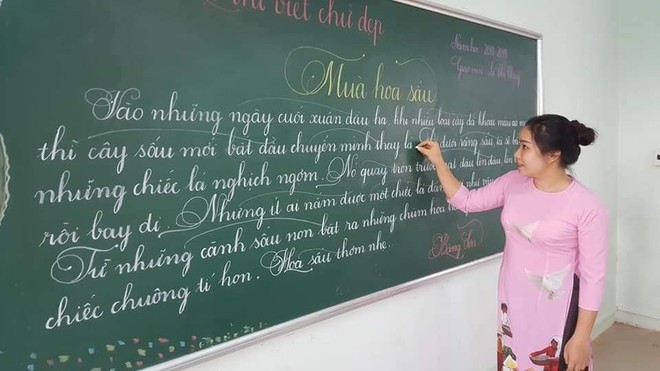 viết chữ đẹp
Năm học
Giáo viên:
Mùa hoa sấu
Vào những ngày cuối xuân đầu hạ, khi nhiều loài cây đã khoác màu áo
thì cây sấu mới bắt đầu chuyển mình thay lá. dưới hàng sấu, ta sẽ
những chiếc lá nghịch ngợm. Nó quay tròn trước mặt, đậu lên đầu,
rồi bay đi. Nhưng ít ai nắm được một chiếc lá đang như
Từ những cành sấu non bật ra những chùm hoa
chiếc chuông tí hon. Hoa sấu thơm nhẹ.